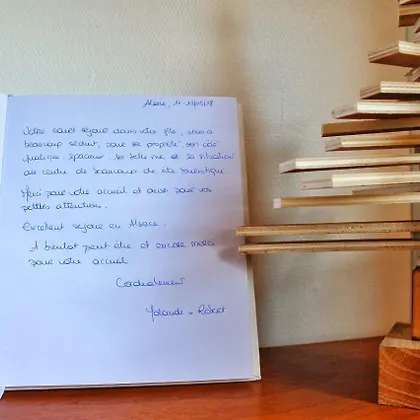 Alsace, 11-14/05/18
Notre court séjour dans votre gîte, nous a
beaucoup séduit, pour sa propreté, son côté
pratique, spacieux, la belle vue et sa situation
au centre de beaucoup de site touristique.
Merci pour votre accueil et aussi pour vos
petites attentions.
Excellent séjour en Alsace.
A bientot peut être et encore merci
pour votre accueil
Cordialement
Yolande & Robert